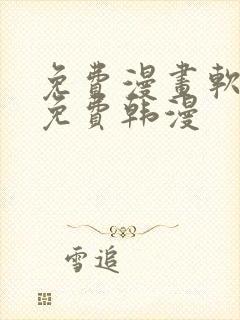 免費漫畫軟
免費韩漫
雪追